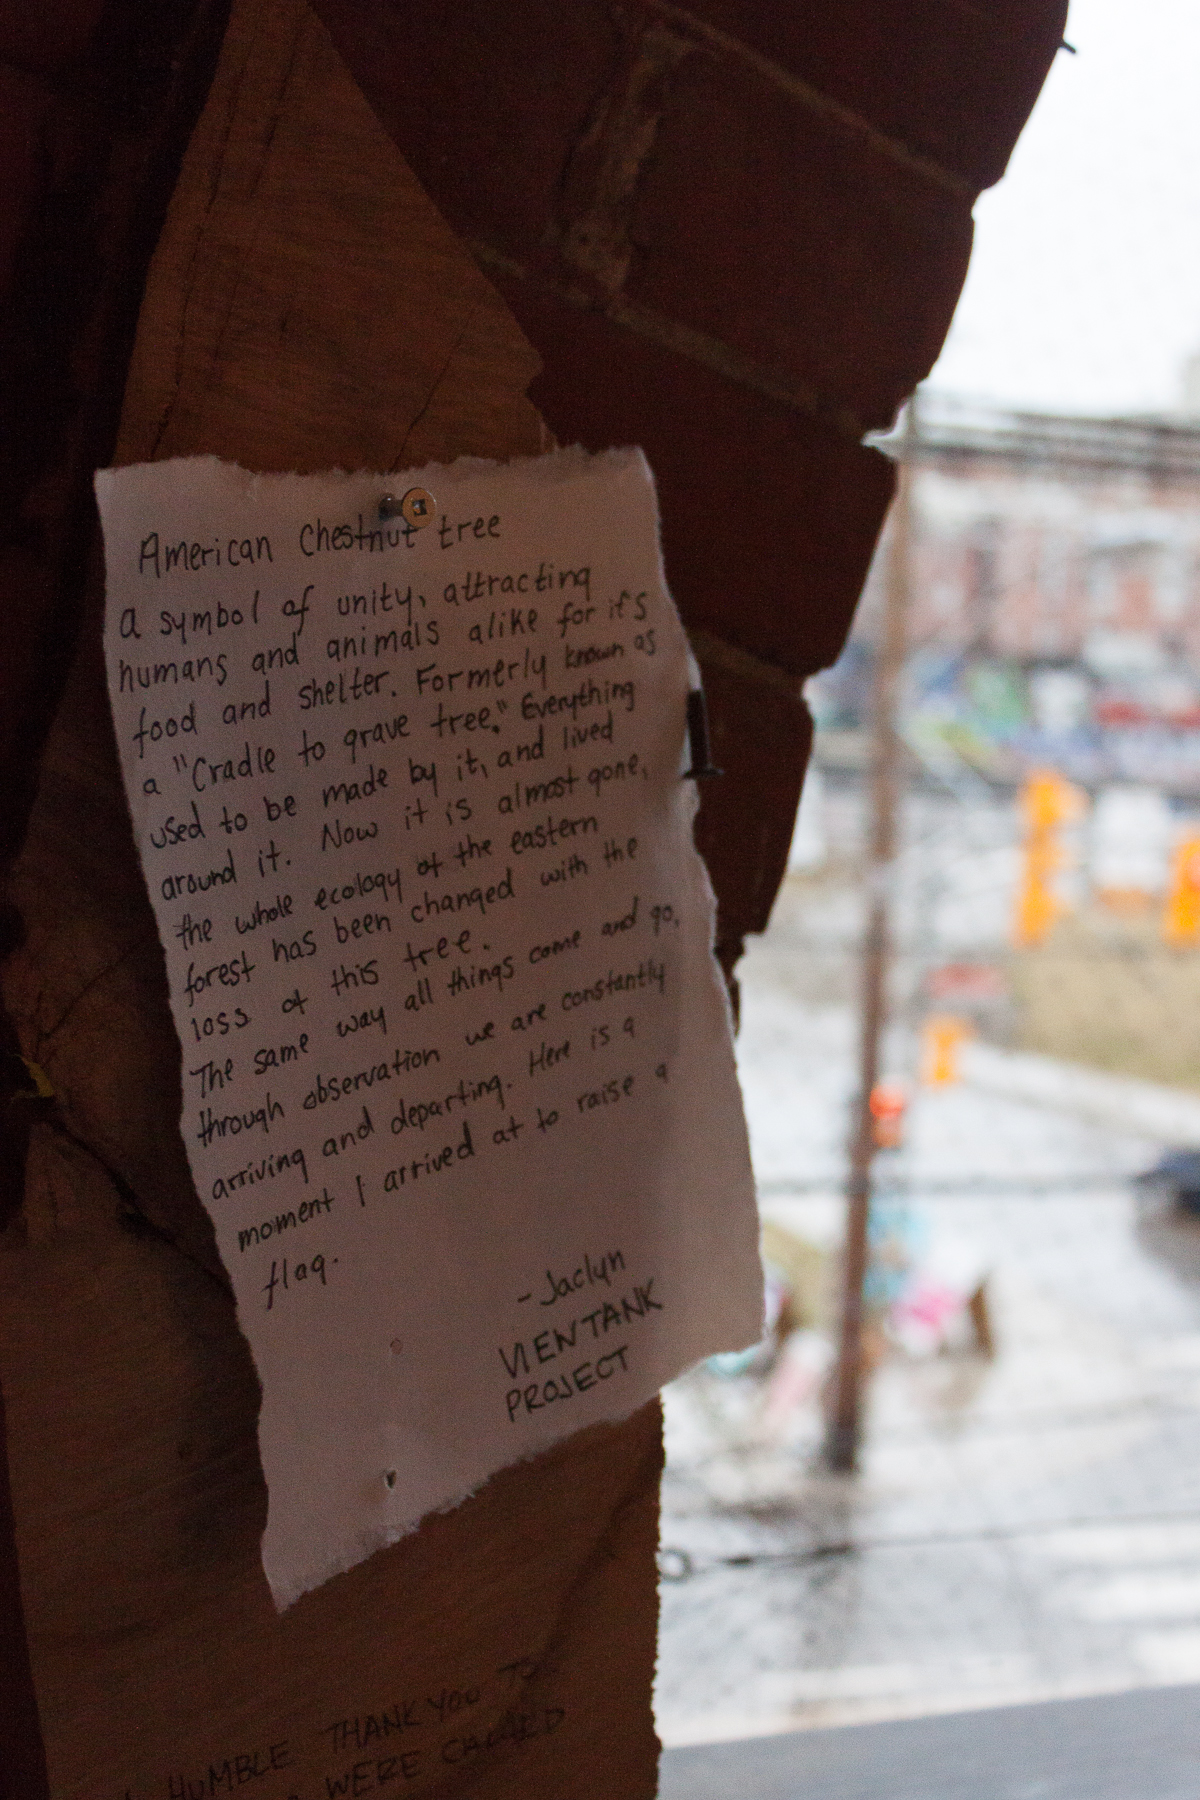 American Chestnut tree
a symbol of unity, attracting
humans and animals alike for it's
food and shelter. Formerly known as
a "Cradle to grave tree." Everything
used to be made by it, and lived
around it. Now it is almost gone,
the whole ecology of the eastern
forest has been changed with the
loss of this tree.
The same way all things come and go,
through observation we are constantly
arriving and departing. Here is a
moment I arrived at to raise a
flag.
- Jaclyn
VIENTANK
PROJECT
HUMBLE THANK YOU TO
WERE CALLED